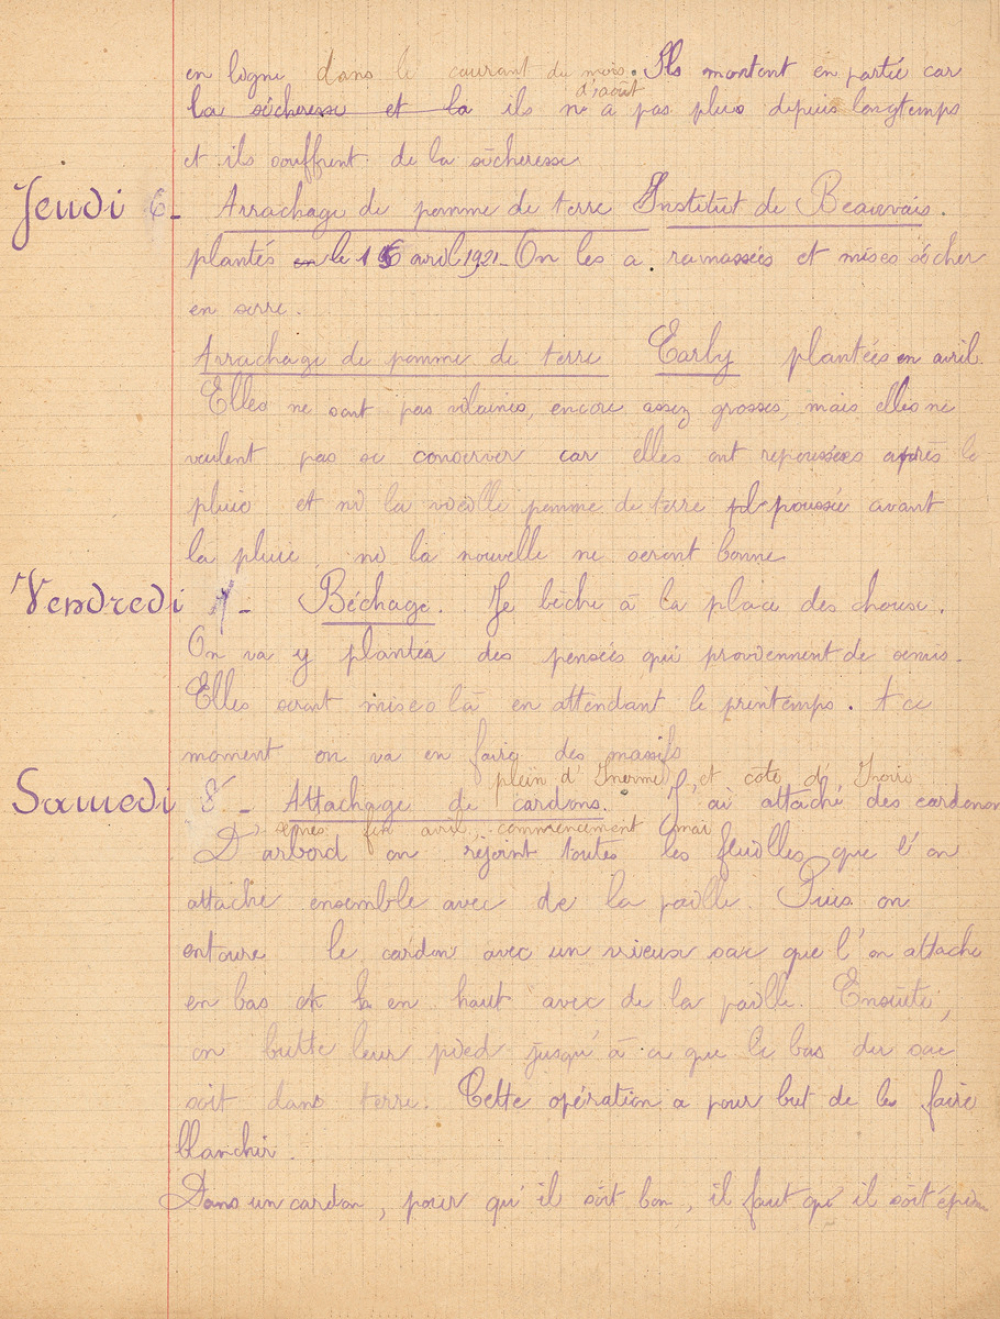 en ligne dans le courant du mois. Ils montent en partie car
d'août
la sécheresse et la ils n a pas plus depuis longtemps
et ils souffrent de la sécheresse
Jeudi 6 - Arrachage de pomme de terre Institut de Beauvais.
plantés en le 16 avril 1921 - On les a ramassées et mises sécher
en serre.
Arrachage de pomme de terre Early plantées en avril.
Elles ne sont pas vilaines, encore assez grosses, mais elles ne
veulent pas se conserver car elles ont repoussées après la
pluie et ni la vieille pomme de terre repoussée avant
la pluie ni la nouvelle ne seront bonne
Vendredi 7 - Béchage. Je bèche à la place des choux.
On va y plantés des pensées qui proviennent de semis.
Elles seront mises là en attendant le printemps. A ce
moment on va en faire des massifs
plein d' Inerme, et côte d' Ivoire
Samedi 8 - Attachage de cardons. J'ai attaché des cardons
semés fin avril, commencement mai
D'arbord on rejoint toutes les feuilles que l'on
attache ensemble avec de la paille. Puis on
entoure le cardon avec un vieux sac que l'on attache
en bas et en haut avec de la paille. Ensuite,
on butte leur pied jusqu'à ce que le bas du sac
soit dans terre. Cette opération a pour but de les faire
blanchir.
Dans un cardon, pour qu'il soit bon, il faut qu'il soit